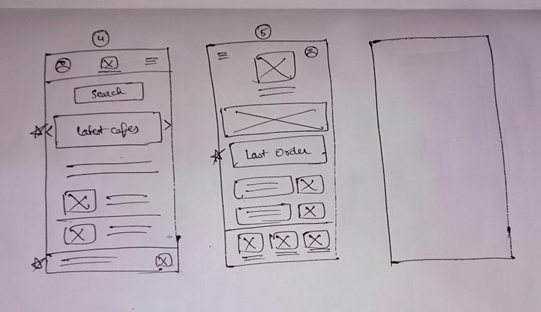 4
Search
Latest cafes
5
Last Order